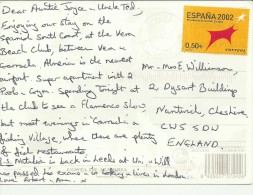 Dear Auntie Joyce & Uncle Ted,
Enjoying our stay on the
Spanish South Coast, at the Vera
Beach Club, between Vera &
Garrucha, Almeria is the nearest
airport. Super apartment with 2
Pools & Gym. Spending Tonight at
the club to see a Flamenco Show
but most evenings in Garrucha a
fishing Village where there are plenty
of fish restaurants
is back in Leeds at Uni & Will
has passed his exams & is in London.
Love
ESPAÑA 2002
0,50€
CORREOS
Mr & Mrs E. Williamson,
2 Dysart Buildings
Nantwich, Cheshire,
CW5 5DW
ENGLAND.